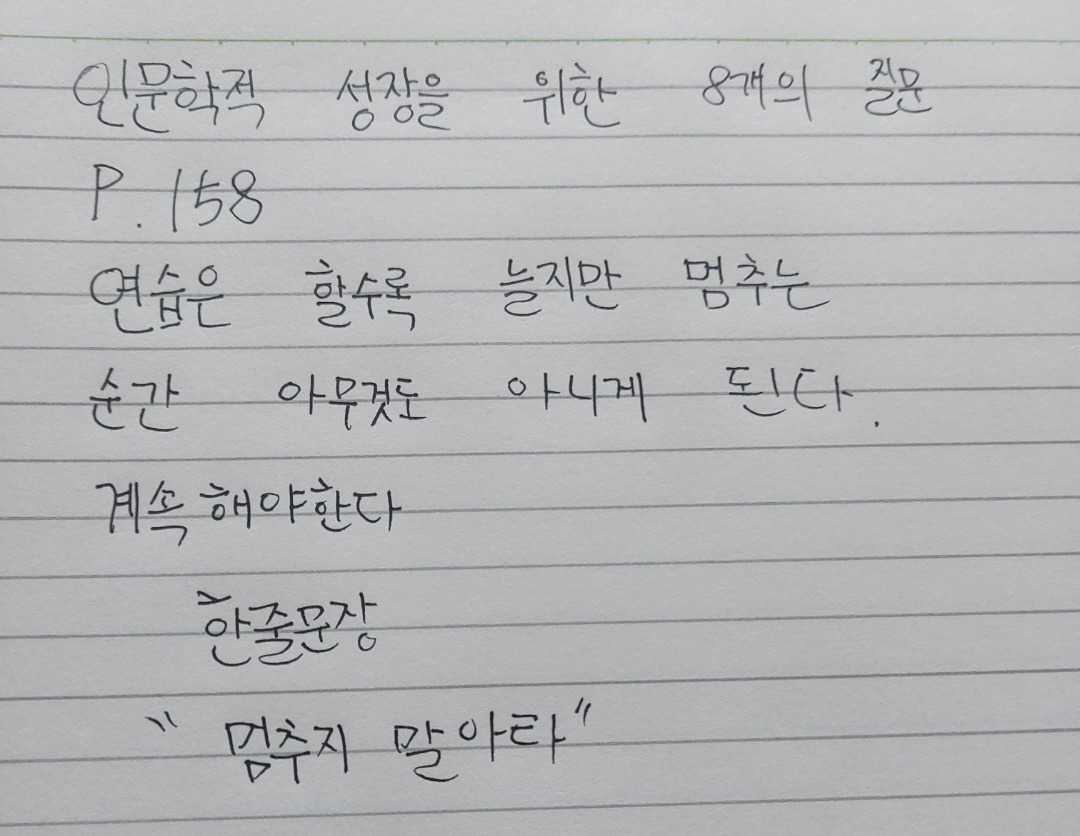 인문학적 성장을 위한 8개의 질문
P. 158
연습은 할수록 늘지만 멈추는
순간 아무것도 아니게 된다.
계속 해야한다
한줄문장
"멈추지 말아타"